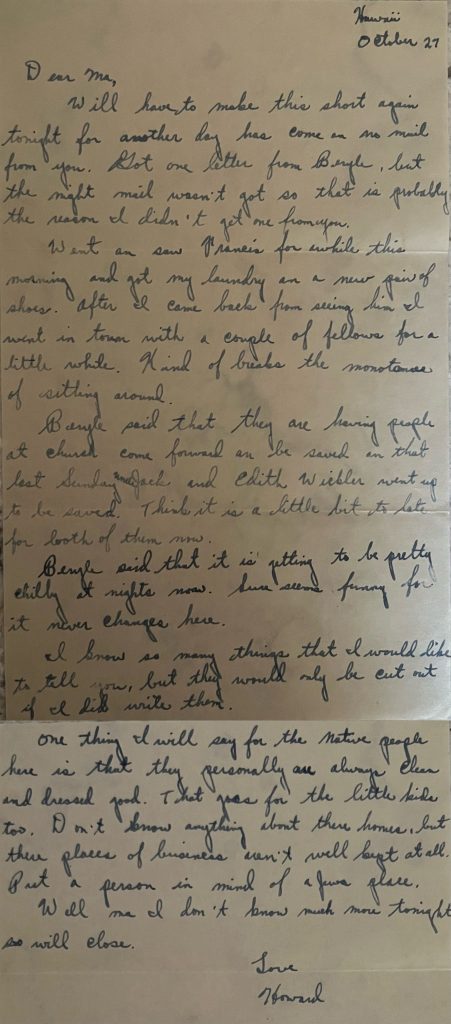 Hawaii
October 27
Dear Ma,
Will have to make this short again
tonight for another day has come an no mail
from you. Got one letter from Beryle, but
the night mail wasn't got so that is probably
the reason I didn't get one from you.
Went an saw Francis for awhile this
morning and got my laundry an a new pair of
shoes. After I came back from seeing him I
went in town with a couple of fellows for a
little while. Kind of breaks the
of sitting around.
Beryle said that they are having people
at church come forward an be saved an that
last Sunday Jack and Edith went up
to be saved. Think it is a little bit to late
for booth of them now.
Beryle said that it is getting to be pretty
chilly at nights now. Sure seems funny for
it never changes here.
I know so many things that I would like
to tell you, but they would only be cut out
if I did write them.
One thing I will say for the native people
here is that they personally are always clean
and dressed good. That goes for the little kids
too. Don't know anything about there homes, but
there places of business aren't well kept at all.
Put a person in mind of a Jews place.
Well ma I don't know much more tonight
so will close.
Love
Howard